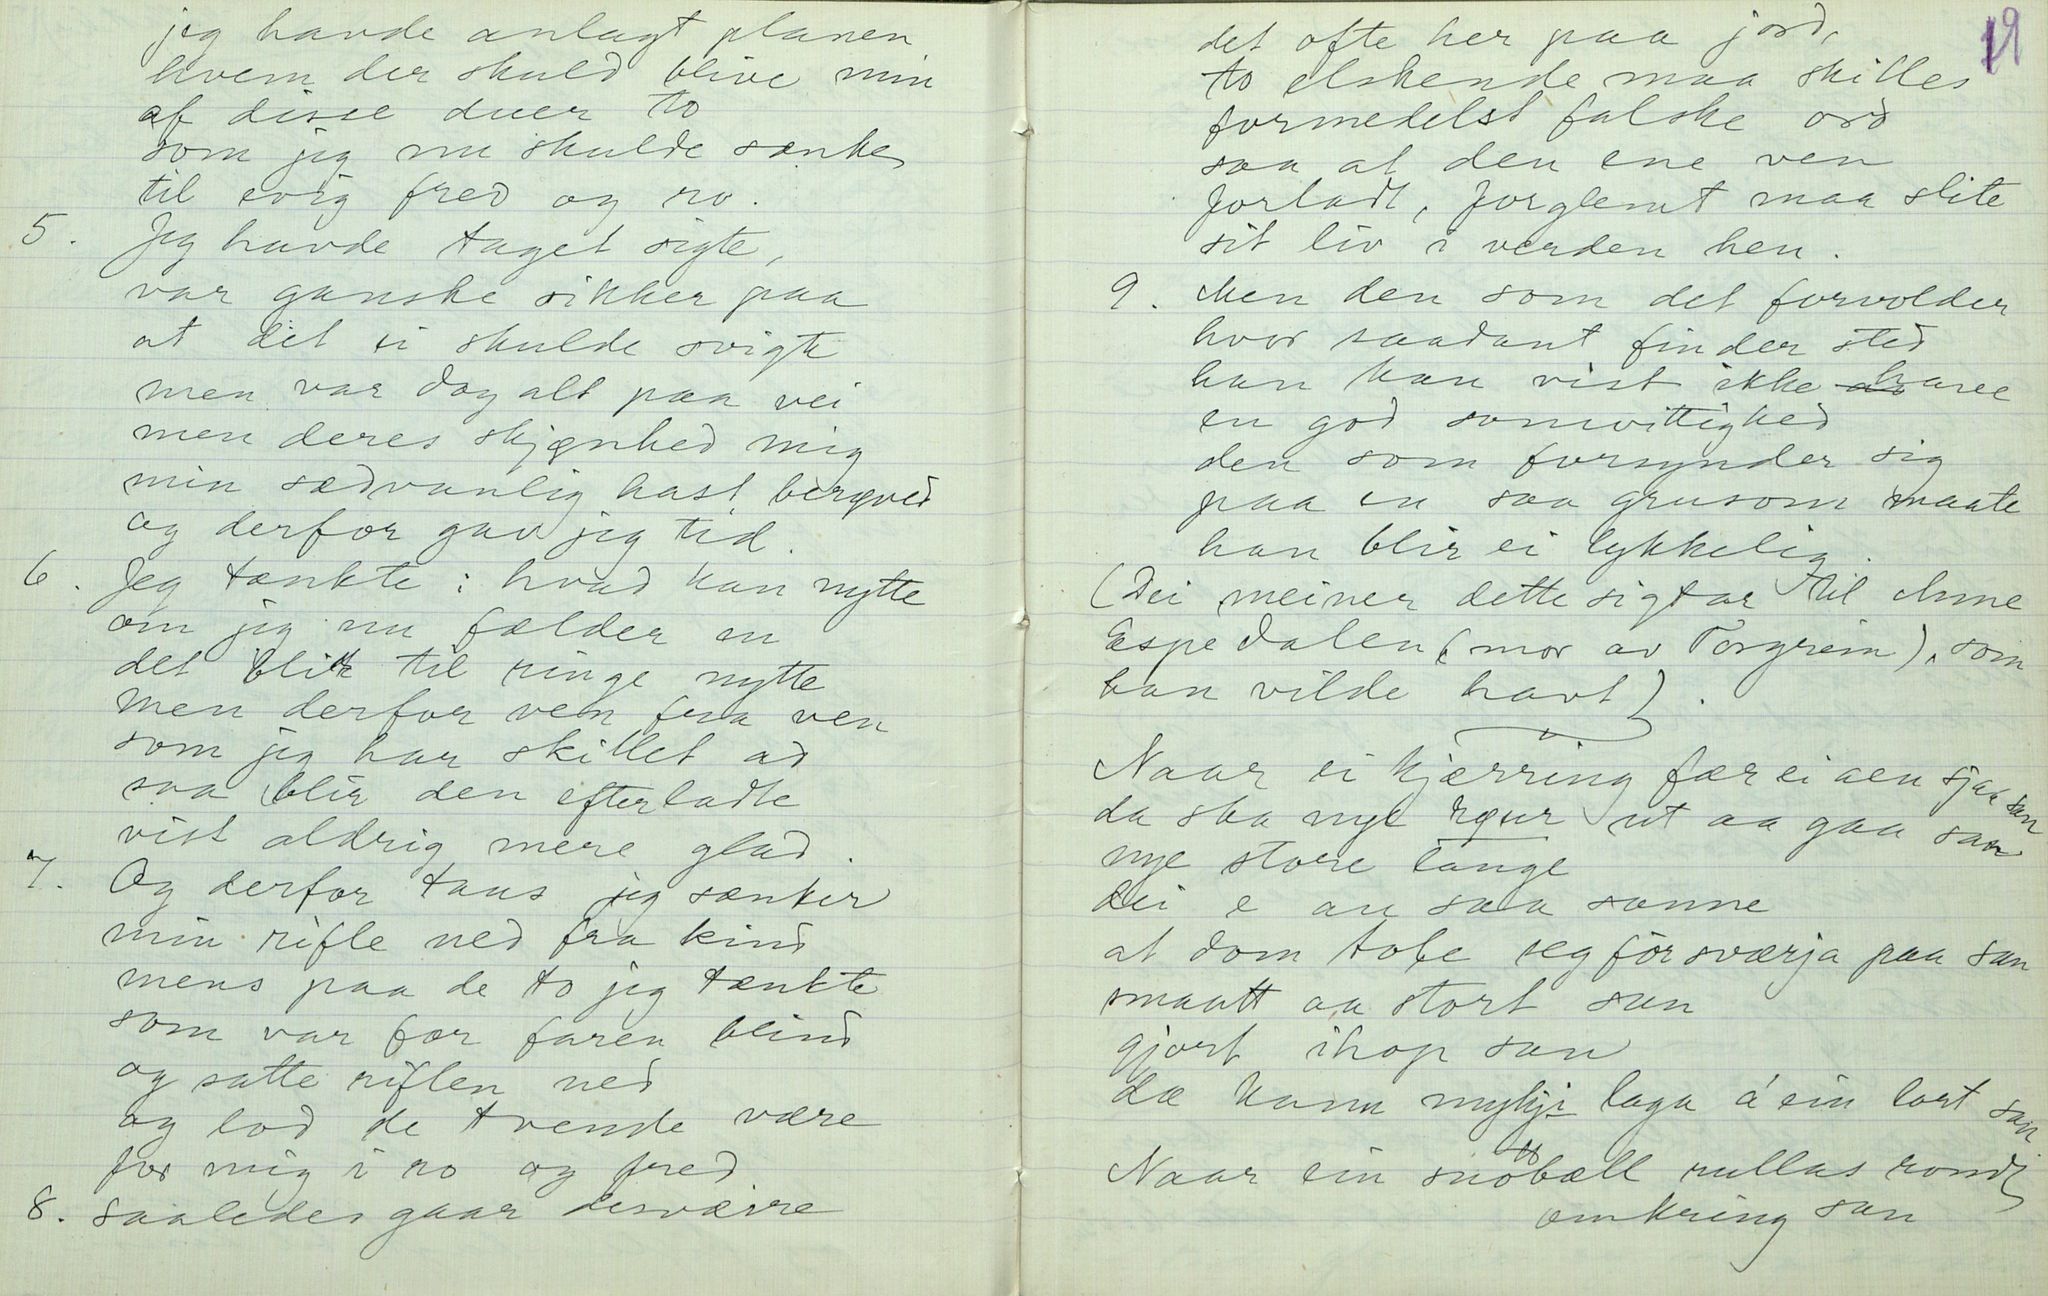 jeg havde anlagt planen
hvem der skuld blive min
af disse duer to
som jeg nu skulde sænke
til evig fred og ro.
5. Jeg havde taget sigte,
var ganske sikker paa
at det ei skulde svigte
men var dog alt paa vei
men deres skjønhed mig
min sædvanlig hast berøved
og derfor gav jeg tid.
6. Jeg tænkte: hvad kan nytte
om jeg nu fælder en
det blir til ringe nytte
men derfor ven fra ven
som jeg har skillet ad
saa blir den efterladte
vist aldrig mere glad.
7. Og derfor taus jeg sænker
min rifle ned fra kind
mens paa de to jeg tænkte
som var for faren blind
og satte riflen ned
og lod de tvende være
for mig i ro og fred
8. Saaledes gaar desværre
19
det ofte her paa jord,
to elskende maa skilles
formedelst falske ord
saa at den ene ven
forladt, forglemt maa slite
sit liv i verden hen.
9. Men den som det forvolder
hvor saadant finder sted
han kan vist ikke have
en god samvittighed
den som forsynder sig
paa en saa grusom maate
han blir ei lykkelig.
(Dei meiner dette sigtar til Anne
Espedalen (mor av Torgrim), som
han vilde havt).
Naar ei kjærring fær ei aen sjaa san
da ska nye røur ut aa gaa san
nye store lange
dei e au saa sanne
at dom tole seg forsværja paa san
smaatt aa stort san
gjort ihop san
dæ kann mykji laga á ein lort san
Naar ein snöball rullas rondt
omkring san